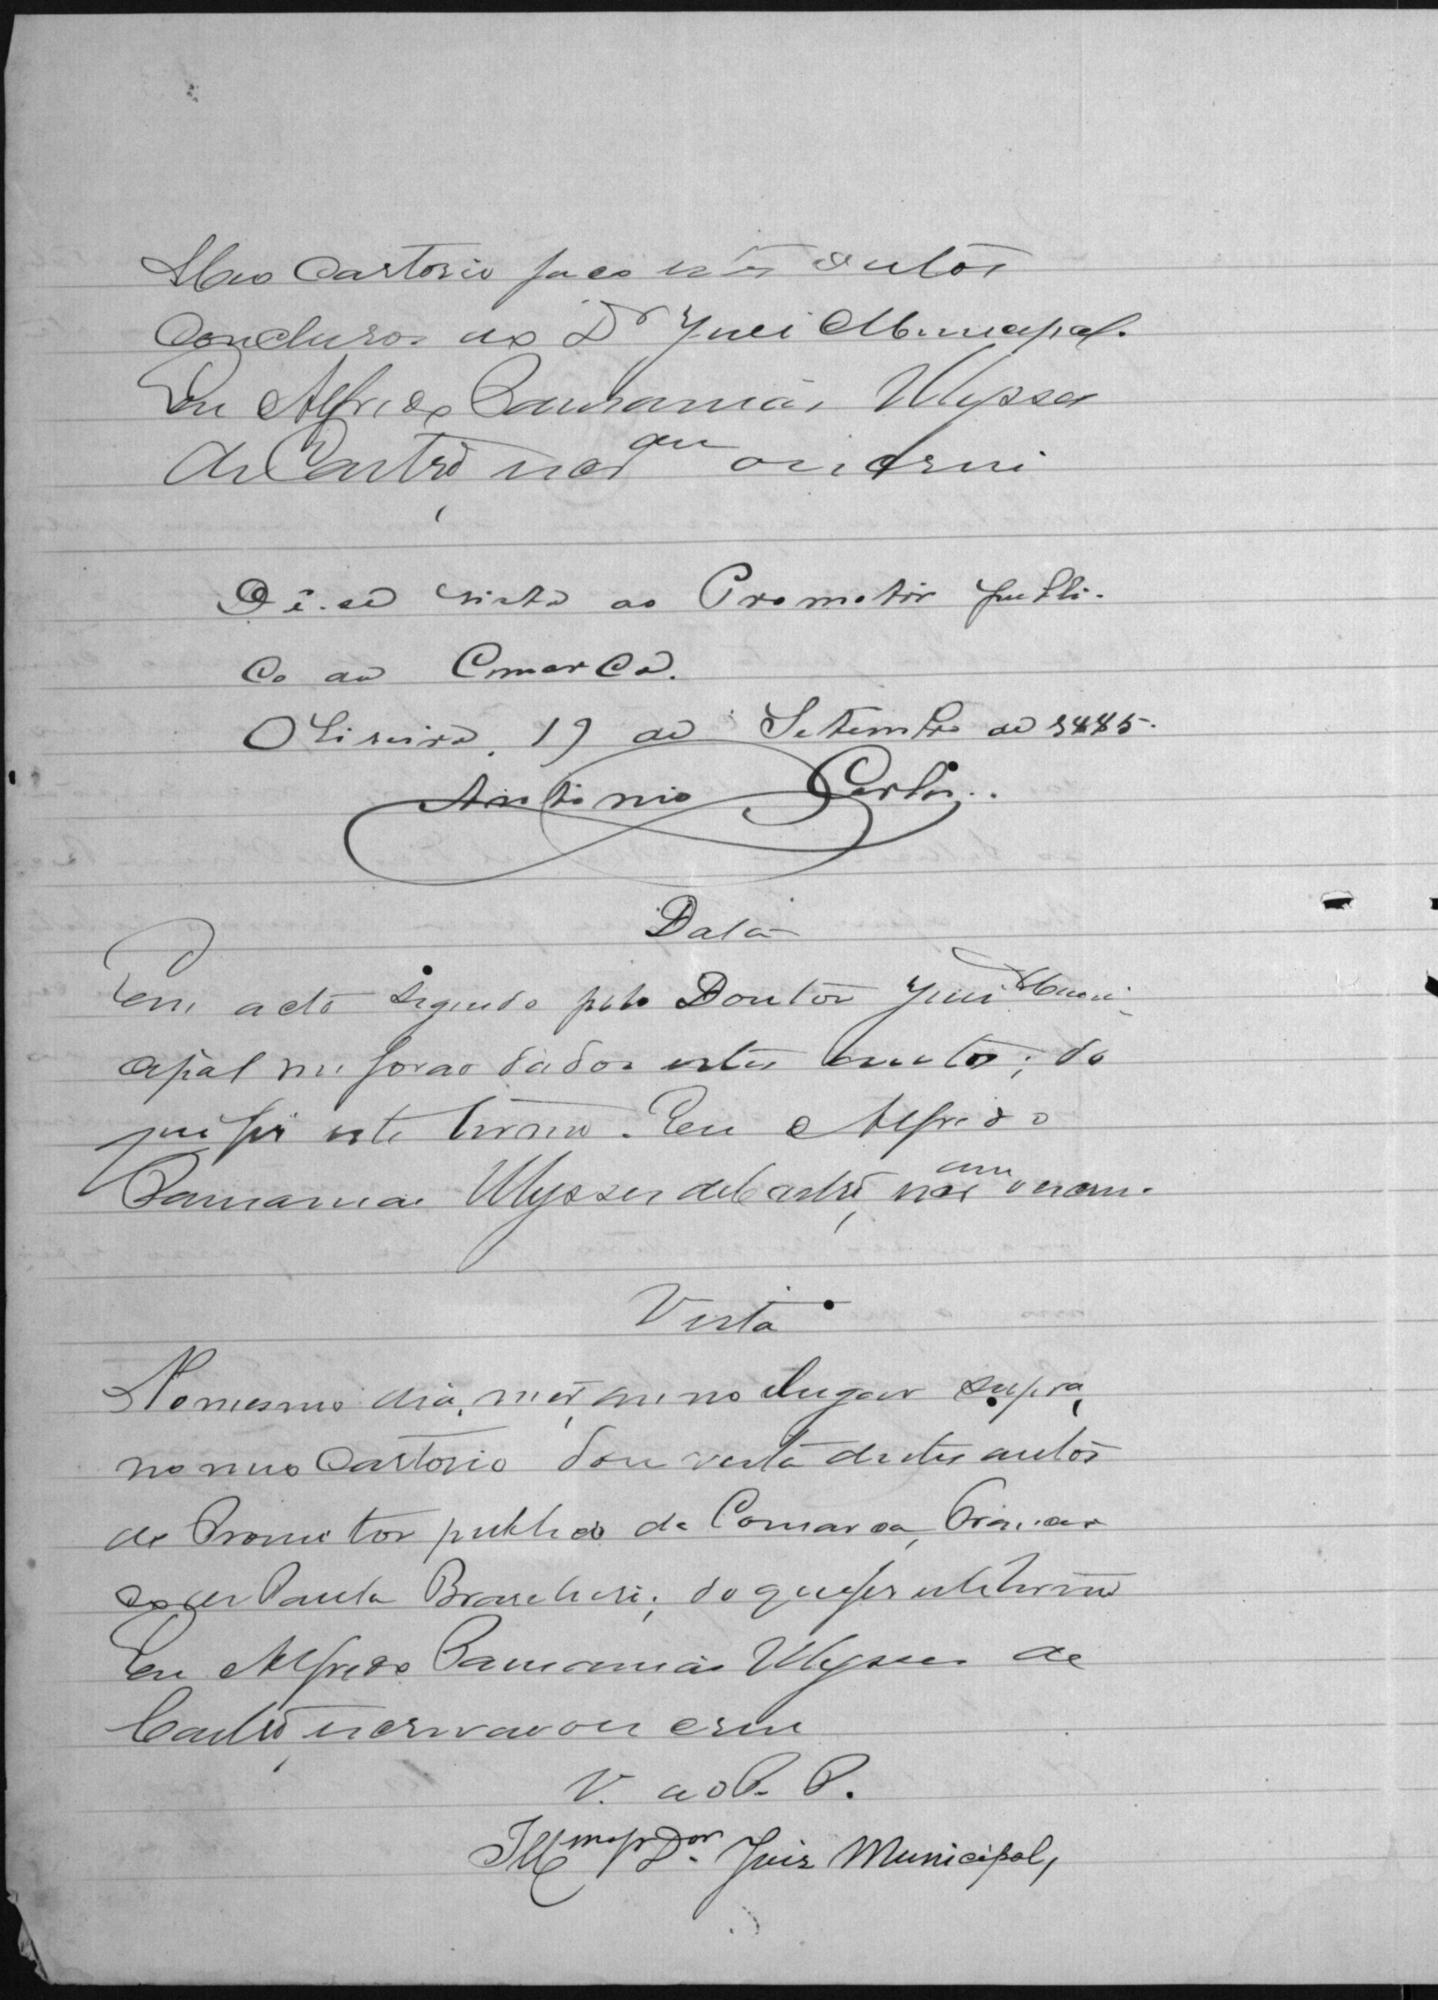 Meu Cartorio faço estes autos
Conclusos ao Dr Juiz Municipal.
Eu Alfredo Ulysses
de Castro, escram o escrevi
Dê-se vista ao Promotor publi-
co da Comarca.
Oliveira, 19 de Setembro de 1885.
Antonio Carlos..
Data
Em acto seguido pelo Doutor Juiz Muni-
cipal me forão dados estes autos; do
que fis este termo. Eu Alfredo
Ulysses de Castro, escram o escrevi.
Vista
No mesmo dia, mez, anno e lugar supra,
no meu Cartorio dou vista destes autos
ao Promotor publico da Comarca, Francis
co de Paula; do que fis este termo
Eu Alfredo Ulysses de
Castro, escrivão o escrevi
V. ao P. P.
Illmo Snr Dor Juiz Municipal,